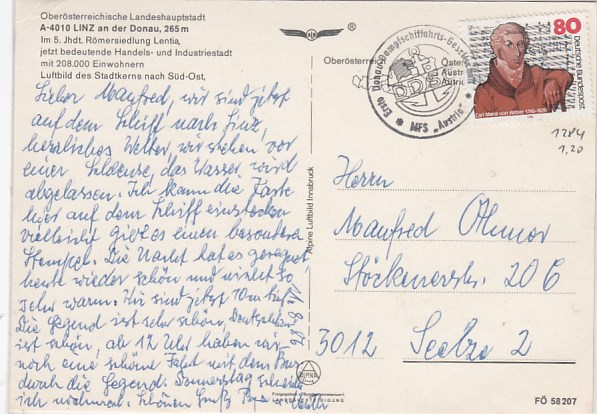 Oberösterreichische Landeshauptstadt
A-4010 LINZ an der Donau, 265 m
Im 5. Jhdt. Römersiedlung Lentia,
jetzt bedeutende Handels- und Industriestadt
mit 208.000 Einwohnern
Luftbild des Stadtkerns nach Süd-Ost,
Lieber Manfred, wir sind jetzt
auf dem Schiff nach Linz,
herrliches Wetter, wir stehen vor
einer Schleuse, das Wasser wird
abgelassen. Ich kann die Karte
hier auf dem Schiff einstecken
vielleicht gibt es einen besonderen
Stempel. Die Nacht hat es geregnet,
heute wieder schön und nicht so
sehr warm. Wir sind jetzt 10m tief
Die Gegend ist sehr schön, Deutschland
ist schön, ab 12 Uhr haben wir
noch eine schöne Fahrt mit dem Bus
durch die Gegend. Donnerstag schreibe
ich nochmal. Schönen Gruß
Alpine Luftbild Innsbruck
Oberösterreich
Erste Donau-Dampfschiffahrts-Gesellschaft
DDSG
MFS „Austria"
80
Deutsche Bundespost
Carl Maria von Weber 1786-1826
1284
1,20
Herrn
Manfred Ohmer
Stöckenerstr. 206
3012 Seelze 2
FÖ 58207